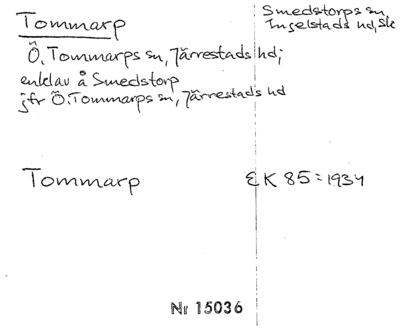 Tommarp
Smedstorps sn,
Ingelstads hd, Sk
Ö. Tommarps sn, Järrestads hd;
enklav å Smedstorp
jfr Ö. Tommarps sn, Järrestads hd
Tommarp EK 85:1934
Nr 15036